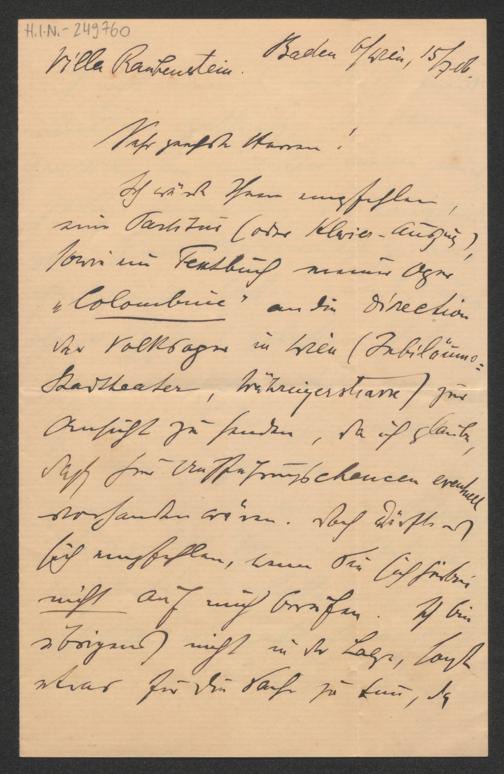 H.I.N.-249760
Villa Rautenstein. Baden b/Wien, 15/
Sehr geehrte Herren!
Ich würde Ihnen empfehlen,
eine Partitur (oder Klavier-Auszug),
sowie ein Textbuch meiner Oper
„Colombine" an die Direction
der Volksoper in Wien (Jubiläums-
Stadttheater, Währingerstrasse) zur
Ansicht zu senden, da ich glaube,
daß hier Aufführungschancen eventuell
vorhanden wären. Doch dürfte es
sich empfehlen, wenn Sie sich hiebei
nicht auf mich berufen. Ich bin
übrigens nicht in der Lage, sonst
etwas für die Sache zu tun, da